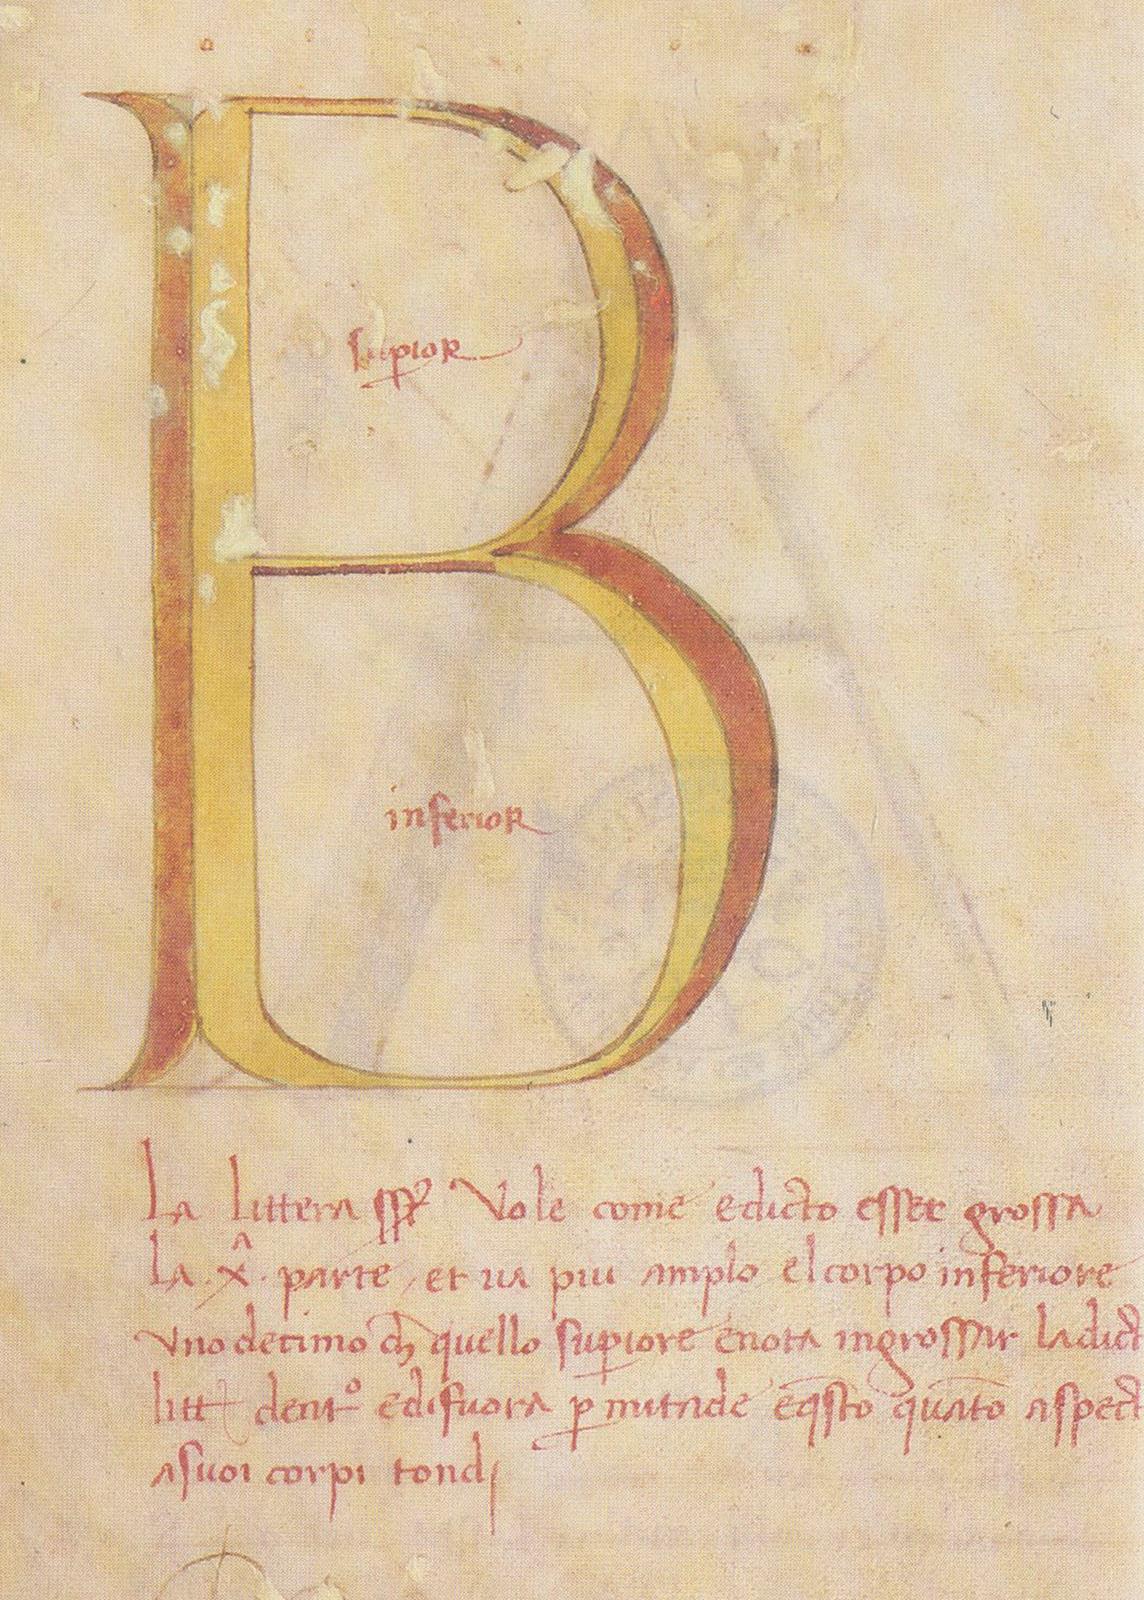 B
supior
inferior
La littera Vole come edicto esser grossa
la .x^a. parte, et ua piu amplo el corpo inferiore
uno decimo ch quello supiore enota ingrossar la dict
litt dent° edifuora p mitade eqsto quato aspect
asuoi corpi tondj